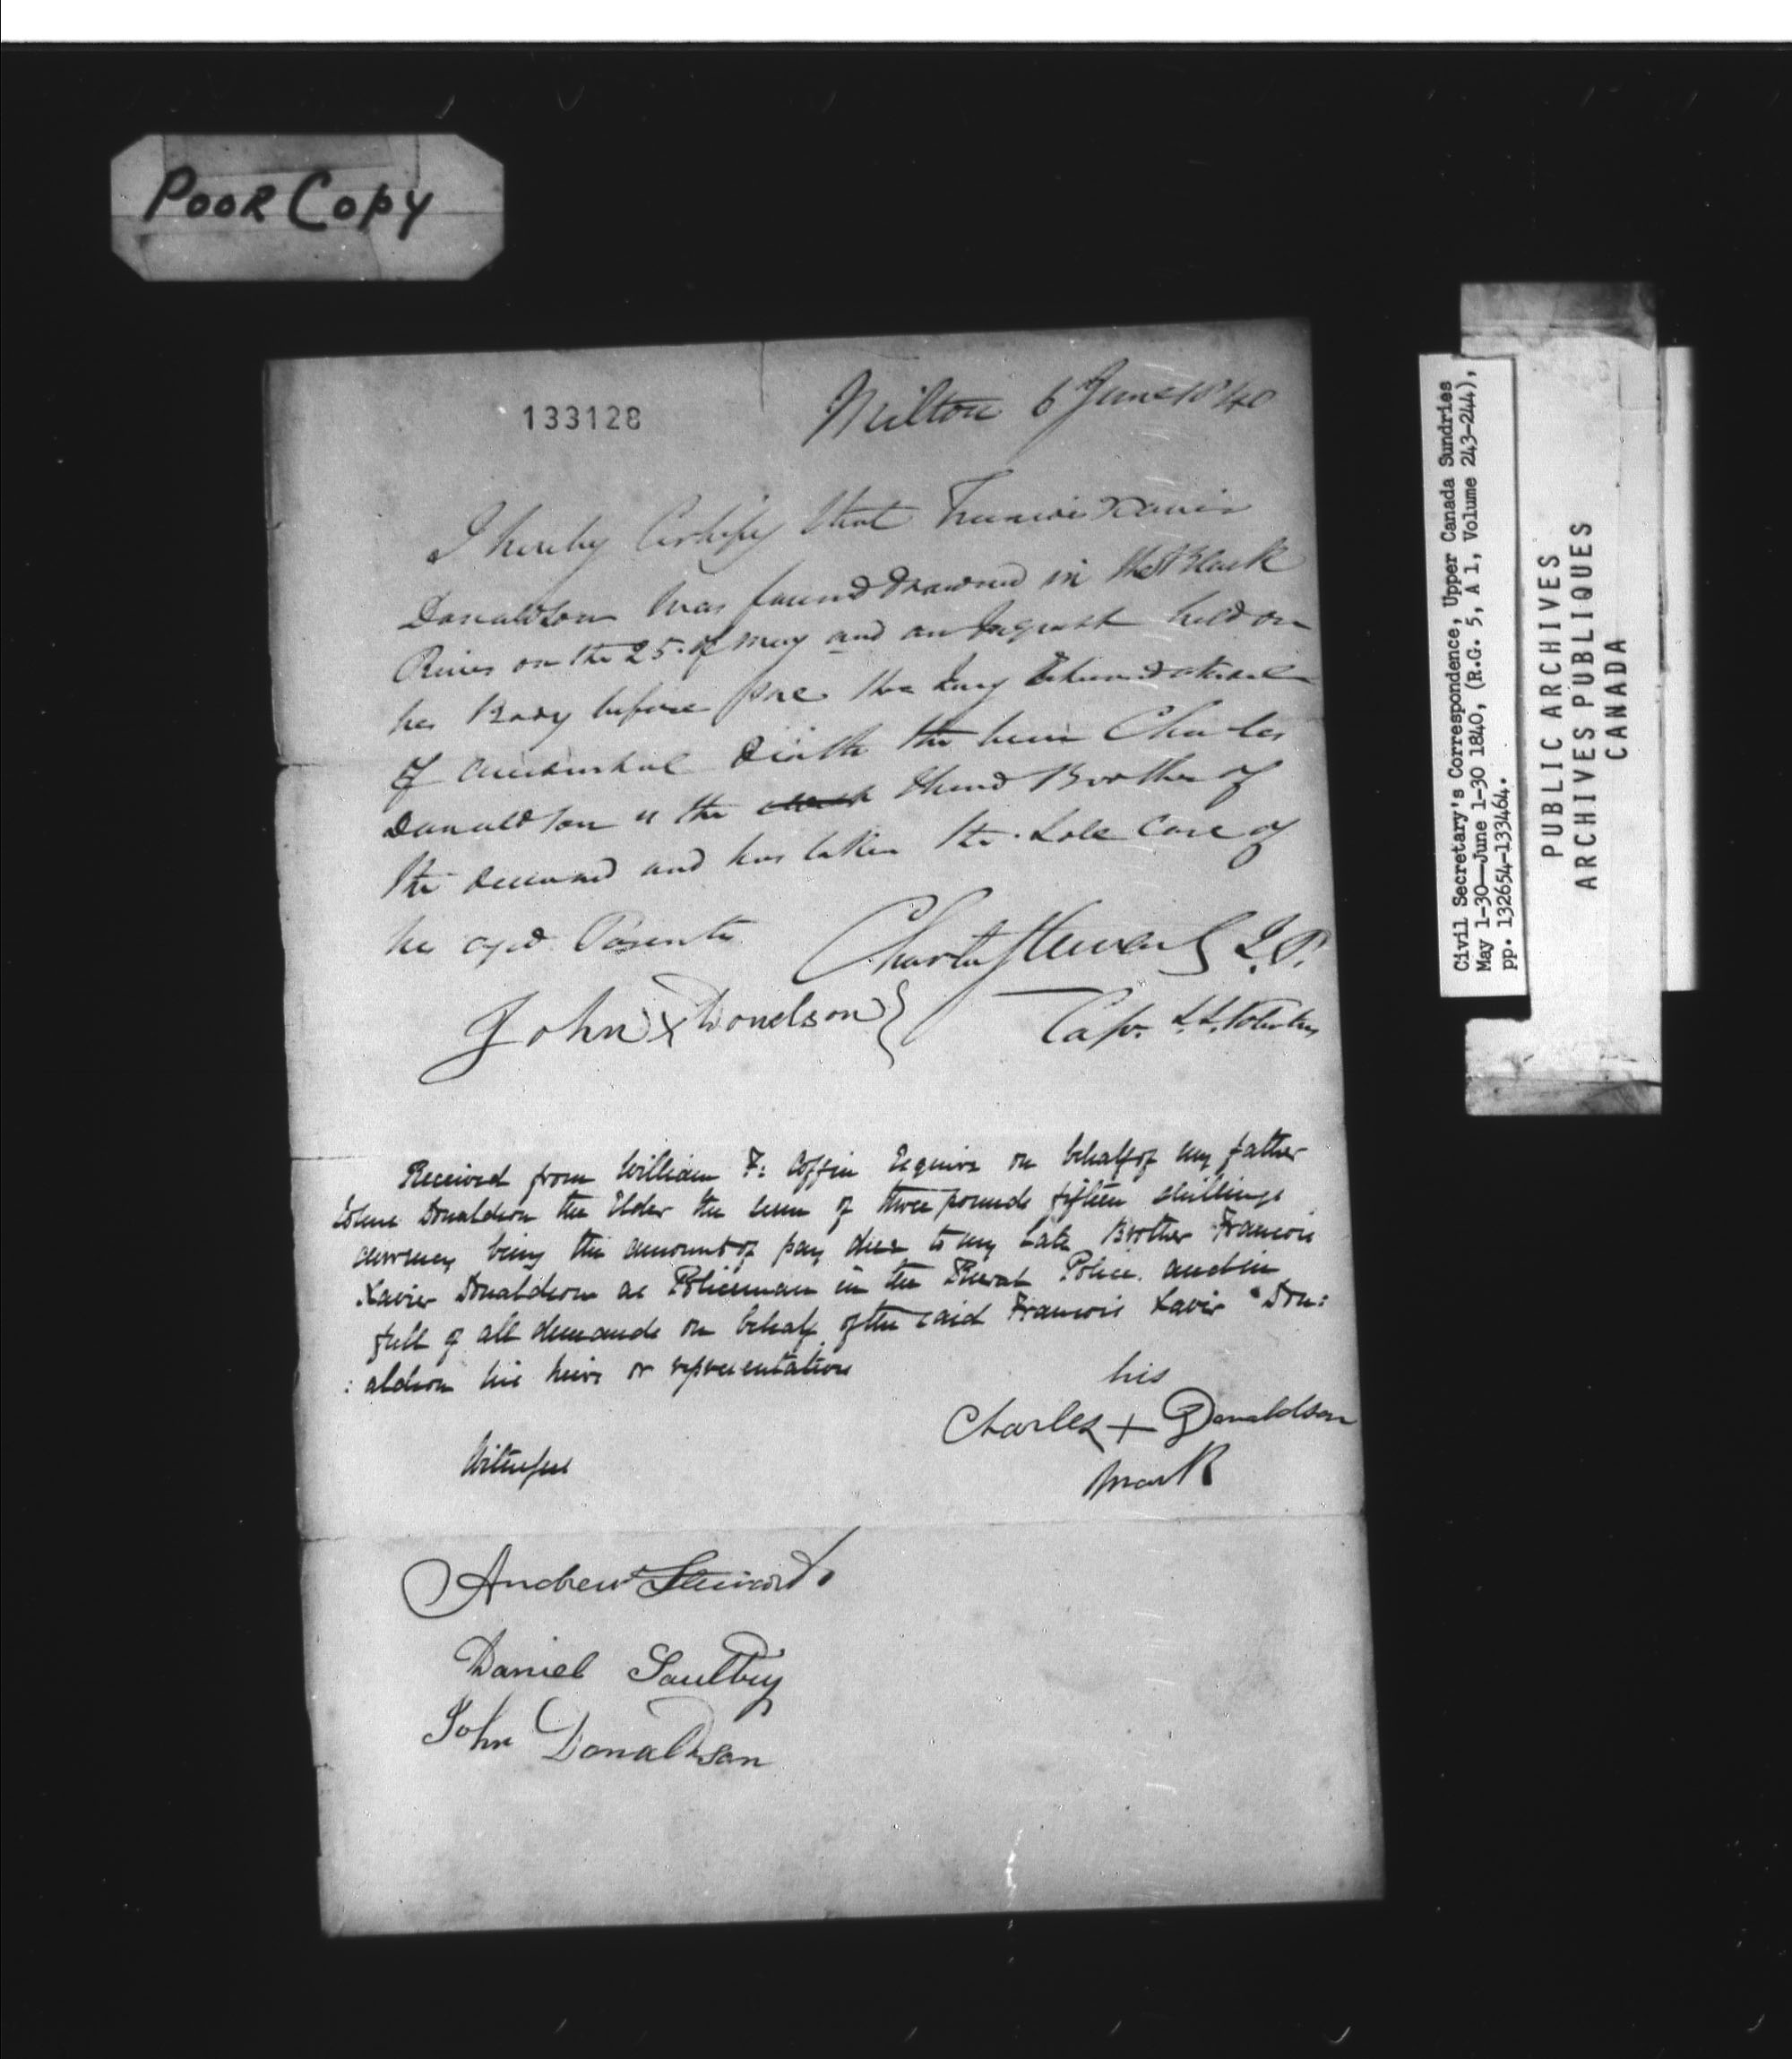 POOR COPY
133128
Milton 6 June 1840
I hereby Certify that Francois Xavier
Donaldson was found drowned in the Black
River on the 25 of May and an Inquest held on
his Body before me the Jury
of accidental Death the Charles
Donaldson is the third Brother of
the deceased and has taken the Sole Care of
his aged Parents
Charles Stewart J.P.
John X Donelson
Capt.
Received from William F: Coffin Esquire on behalf of my father
Donaldson the Elder the sum of three pounds fifteen shillings
currency being the amount of pay due to my late Brother Francois
Xavier Donaldson as Policeman in the Rural Police. and in
full of all demands on behalf of the said Francois Xavier Don:
: aldson his heirs or representatives
his
Charles + Donaldson
mark
Witnesses
Andrew Stewart
Daniel
John Donaldson
Civil Secretary's Correspondence, Upper Canada Sundries
May 1-30—June 1-30 1840, (R.G. 5, A 1, Volume 243-244),
pp. 132654-133464.
PUBLIC ARCHIVES
ARCHIVES PUBLIQUES
CANADA